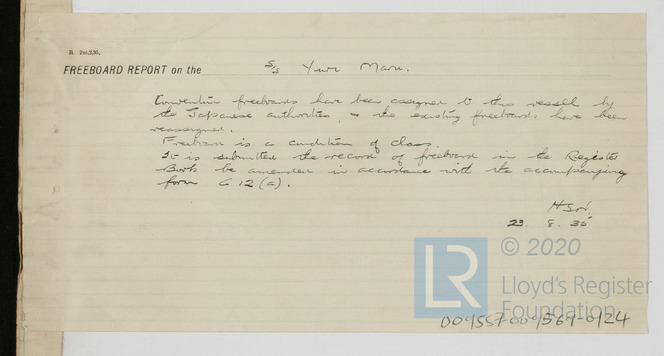 FREEBOARD REPORT on the S/S Yuri Maru.
Convention freeboards have been assigned to this vessel by
the Japanese authorities, & the existing freeboards have been
reassigned.
Freeboard is a condition of class.
It is submitted the record of freeboard in the Register
Book be amended in accordance with the accompanying
form C 12 (a).
23. 8. 35
LR © 2020
Lloyd's Register
Foundation
004557-004569-0124